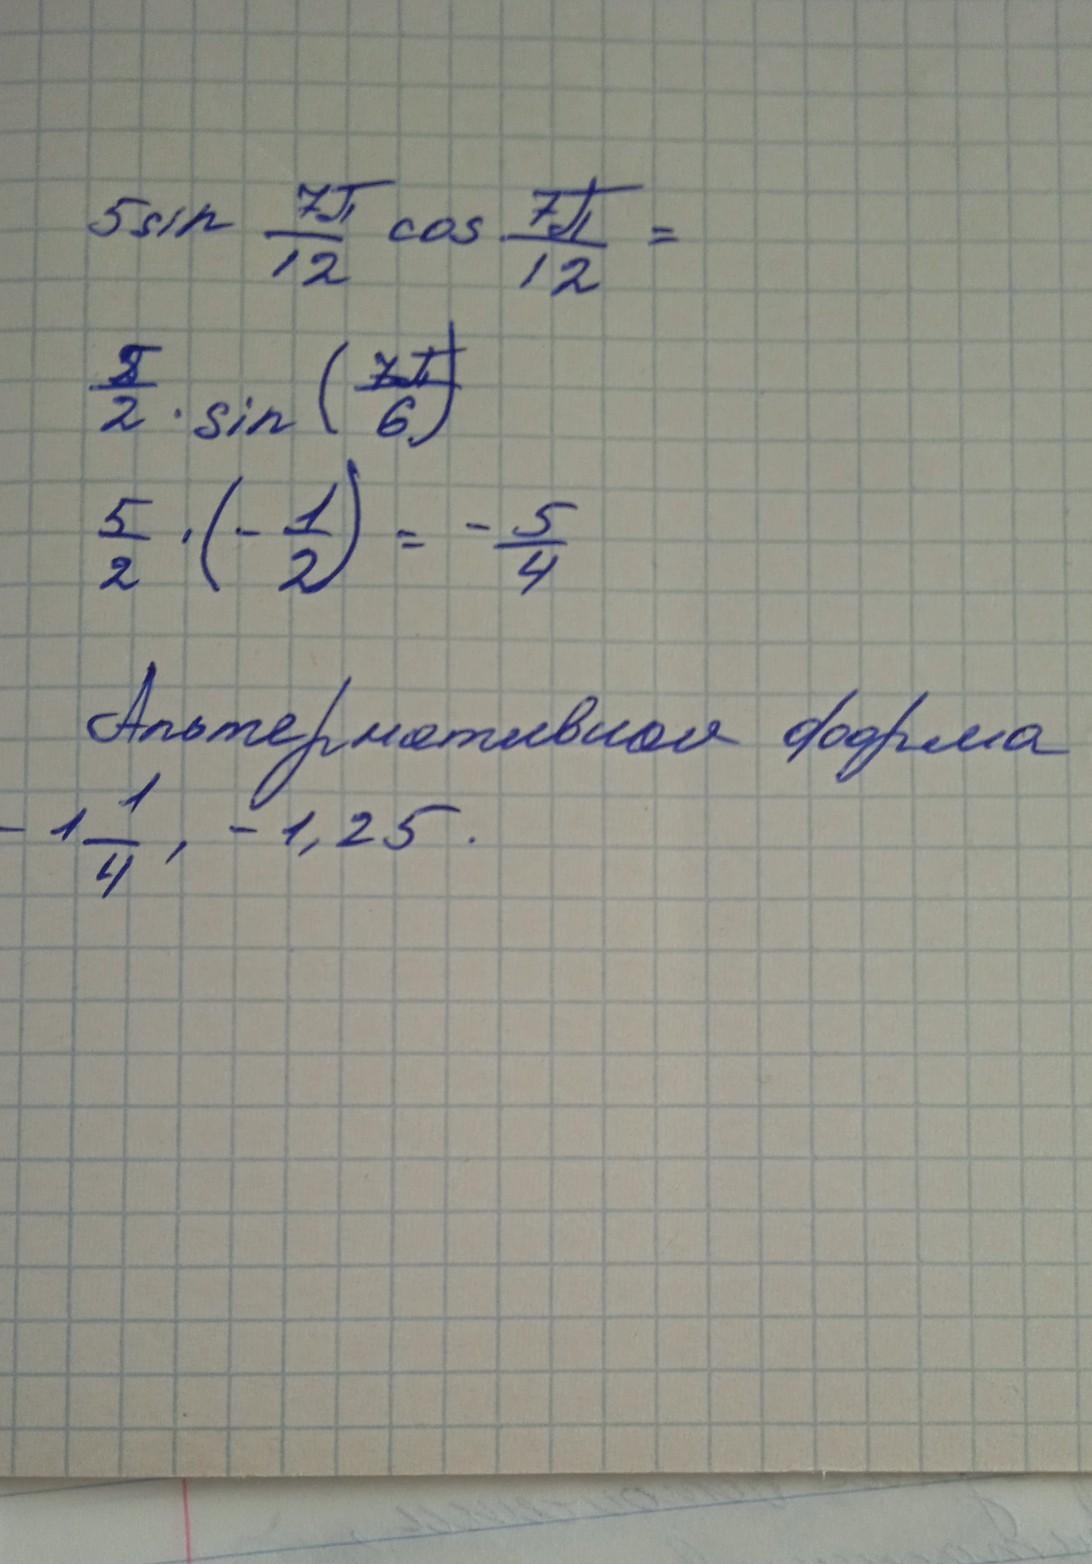 5 sin 7π/12 cos 7π/12 =
5/2 · sin (7π/6)
5/2 · (- 1/2) = - 5/4
Альтернативная форма
- 1 1/4, - 1,25.